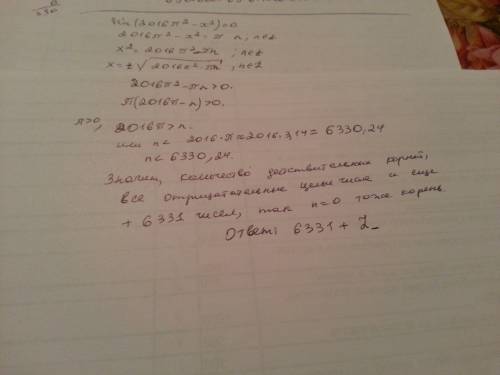 0
330
sin(2016π²-x²)=0
2016π²-x²=π n; n∈z
x²=2016π²-πn ; n∈z
x=±√2016π²-πn ; n∈Z
2016π²-πn>0.
π(2016π-n)>0.
π>0, 2016π>n.
или n< 2016·π≈2016·3,14=6330,24
n< 6330,24.
Значит, количество действительных корней,
все отрицательные целые числа и еще
+ 6331 чисел, так n=0 тоже корень.
Ответ: 6331 + Z_